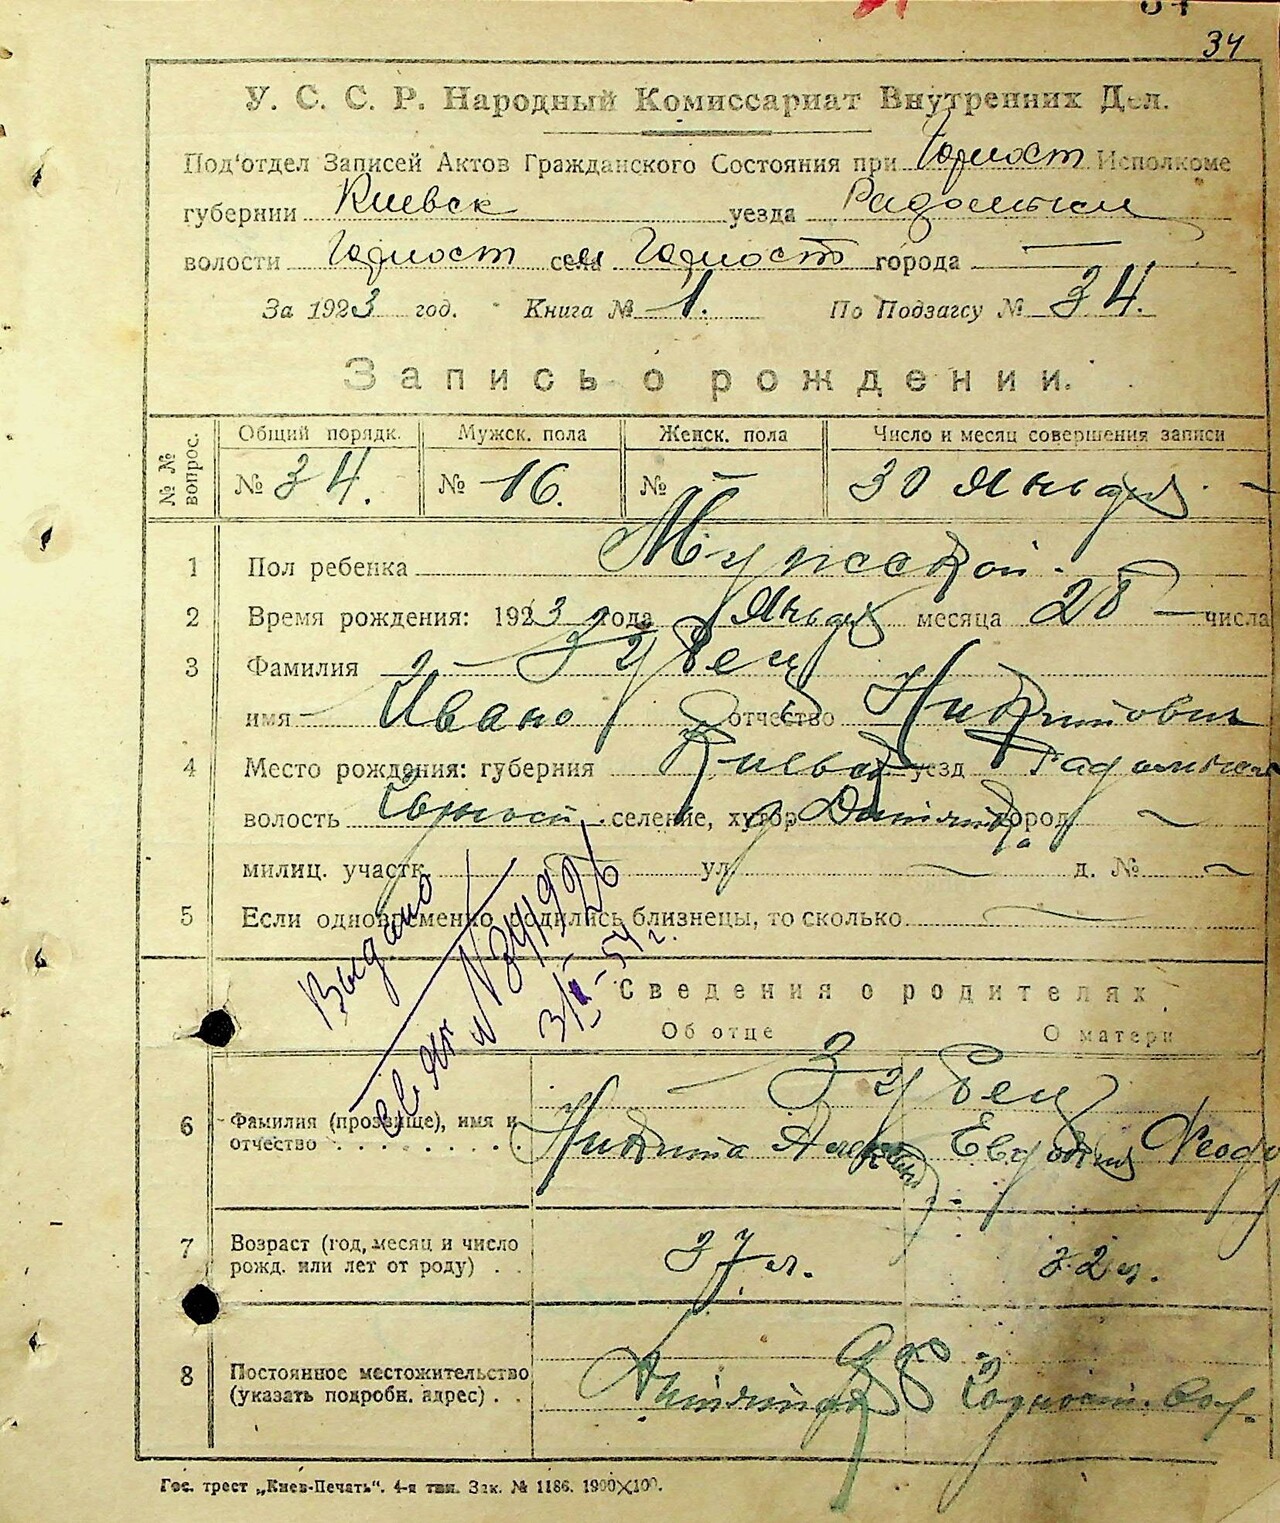 34
У. С. С. Р. Народный Комиссариат Внутренних Дел.
Под'отдел Записей Актов Гражданского Состояния при Горност Исполкоме
губернии Киевск уезда Радомысл
волости Горност села Горност города —
За 1923 год. Книга № 1. По Подзагсу № 34.
Запись о рождении.
№ № вопрос.
Общий порядк. Мужск. пола Женск. пола Число и месяц совершения записи
№ 34. № 16. № — 30 Января
1 Пол ребенка Мужской
2 Время рождения: 1923 года Января месяца 28 числа
3 Фамилия Зубец
имя Иван отчество Никитович
4 Место рождения: губерния Киевск уезд Радомысл
волость Горност. селение, хутор город
милиц. участк. ул. д. №
5 Если одновременно родились близнецы, то сколько
Выдано
св
3/II-54 г.
Сведения о родителях
Об отце О матери
Зубец
6 Фамилия (прозвище), имя и
отчество Никита Евдокия Феодо
7 Возраст (год, месяц и число
рожд. или лет от роду) 37 л. 32 л.
8 Постоянное местожительство
(указать подробн. адрес) Горност. вол.
Гос. трест „Киев-Печать". 4-я тип. Зак. № 1186. 1900×100.